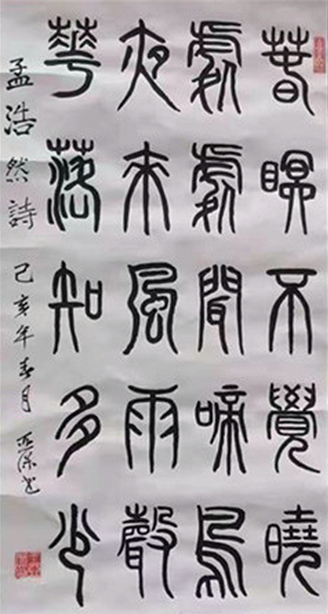 春眠不覺曉
處處聞啼鳥
夜來風雨聲
華落知多少
孟浩然詩 己亥年春月